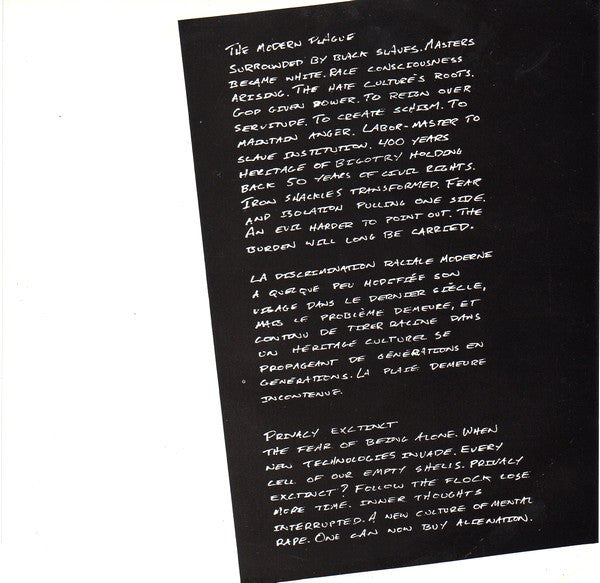 THE MODERN PLAGUE
SURROUNDED BY BLACK SLAVES. MASTERS
BECAME WHITE. RACE CONSCIOUSNESS
ARISING. THE HATE CULTURE'S ROOTS.
GOD GIVEN POWER. TO REIGN OVER
SERVITUDE. TO CREATE SCHISM. TO
MAINTAIN ANGER. LABOR-MASTER TO
SLAVE INSTITUTION. 400 YEARS
HERITAGE OF BIGOTRY HOLDING
BACK 50 YEARS OF CIVIL RIGHTS.
IRON SHACKLES TRANSFORMED. FEAR
AND ISOLATION PULLING ONE SIDE.
AN EVIL HARDER TO POINT OUT. THE
BURDEN WILL LONG BE CARRIED.
LA DISCRIMINATION RACIALE MODERNE
A QUELQUE PEU MODIFIÉE SON
VISAGE DANS LE DERNIER SIÈCLE,
MAIS LE PROBLÈME DEMEURE, ET
CONTINU DE TIRER RACINE DANS
UN HÉRITAGE CULTUREL SE
PROPAGEANT DE GÉNÉRATIONS EN
GÉNÉRATIONS. LA PLAIE DEMEURE
INCONTENUE.
PRIVACY EXCTINCT
THE FEAR OF BEING ALONE. WHEN
NEW TECHNOLOGIES INVADE. EVERY
CELL OF OUR EMPTY SHELLS. PRIVACY
EXCTINCT? FOLLOW THE FLOCK LOSE
MORE TIME. INNER THOUGHTS
INTERRUPTED. A NEW CULTURE OF MENTAL
RAPE. ONE CAN NOW BUY ALIENATION.